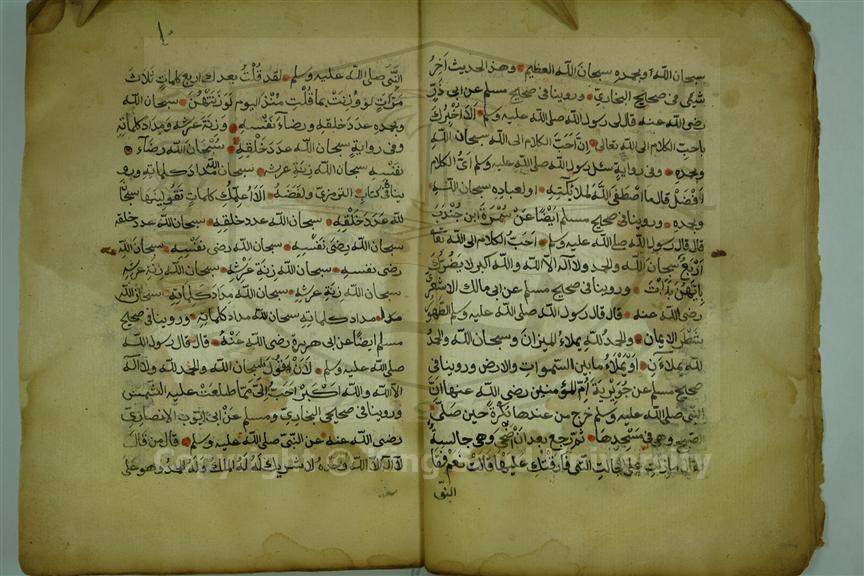 سبحان الله وبحمده سبحان الله العظيم وهذا الحديث آخر
شيء في صحيح البخاري وروينا في صحيح مسلم عن ابي ذر
رضي الله عنه قال لي رسول الله صلى الله عليه وسلم الا اخبرك
باحب الكلام الى الله تعالى ان احب الكلام الى الله سبحان الله
وبحمده وفي رواية سئل رسول الله صلى الله عليه وسلم اي الكلام
افضل قال ما اصطفى الله لملائكته او لعباده سبحان الله
وبحمده وروينا في صحيح مسلم ايضا عن سمرة ابن جندب
قال قال رسول الله صلى الله عليه وسلم احب الكلام الى الله تعالى
اربع سبحان الله والحمد لله ولا اله الا الله والله اكبر لا يضرك
بايهن بدأت وروينا في صحيح مسلم عن ابي مالك الاشعري
رضي الله عنه قال قال رسول الله صلى الله عليه وسلم الطهور
شطر الايمان والحمد لله يملاء الميزان وسبحان الله والحمد
لله يملآن او يملاء ما بين السموات والارض وروينا في
صحيح مسلم عن جويرية ام المؤمنين رضي الله عنها ان
النبي صلى الله عليه وسلم خرج من عندها بكرة حين صلى
الصبح وهي في مسجدها ثم رجع بعد ان اضحى وهي جالسة
فقال ما زلت على الحالة التي فارقتك عليها قالت نعم فقال
النبي
النبي صلى الله عليه وسلم لقد قلت بعدك اربع كلمات ثلاث
مرات لو وزنت بما قلت منذ اليوم لوزنتهن سبحان الله
وبحمده عدد خلقه ورضاء نفسه وزنة عرشه ومداد كلماته
وفي رواية سبحان الله عدد خلقه سبحان الله رضاء
نفسه سبحان الله زنة عرشه سبحان الله مداد كلماته ورو
ينا في كتاب الترمذي ولفظه الا اعلمك كلمات تقولينها سبحان
الله عدد خلقه سبحان الله عدد خلقه سبحان الله عدد خلقه
سبحان الله رضى نفسه سبحان الله رضى نفسه سبحان الله
رضى نفسه سبحان الله زنة عرشه سبحان الله زنة عرشه
سبحان الله زنة عرشه سبحان الله مداد كلماته سبحان الله
مداد كلماته سبحان الله مداد كلماته وروينا في صحيح
مسلم ايضا عن ابي هريرة رضي الله عنه قال قال رسول الله
صلى الله عليه وسلم لان اقول سبحان الله والحمد لله ولا اله
الا الله والله اكبر احب الي مما طلعت عليه الشمس
وروينا في صحيحي البخاري ومسلم عن ابي ايوب الانصاري
رضي الله عنه عن النبي صلى الله عليه وسلم قال من قال
لا اله الا الله وحده لا شريك له له الملك وله الحمد وهو على